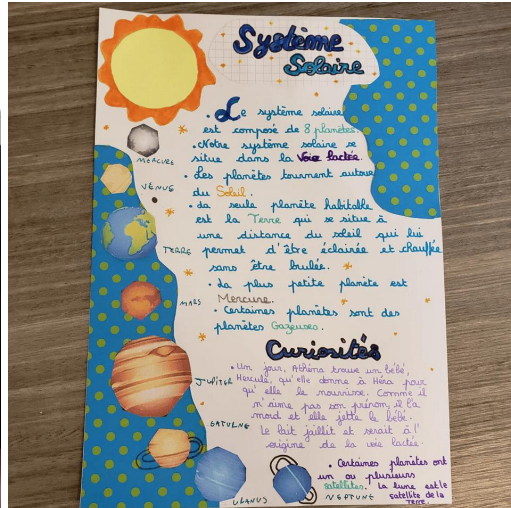 Système
Solaire
• Le système solaire
est composé de 8 planètes.
• Notre système solaire se
situe dans la Voie lactée.
• Les planètes tournent autour
du Soleil.
• La seule planète habitable
est la Terre qui se situe à
une distance du soleil qui lui
permet d'être éclairée et chauffée
sans être brulée.
• La plus petite planète est
Mercure.
• Certaines planètes sont des
planètes Gazeuses.
MERCURE
VENUS
TERRE
MARS
JUPITER
SATURNE
URANUS
NEPTUNE
Curiosités
• Un jour, Athéna trouve un bébé,
Hercule, qu'elle donne à Héra pour
qu'elle le nourrisse. Comme il
n'aime pas son prénom, il la
mord et elle jette le bébé.
Le lait jaillit et serait à l'
origine de la voie lactée.
• Certaines planètes ont
un ou plusieurs
satellites. La lune est le
satellite de la
Terre.